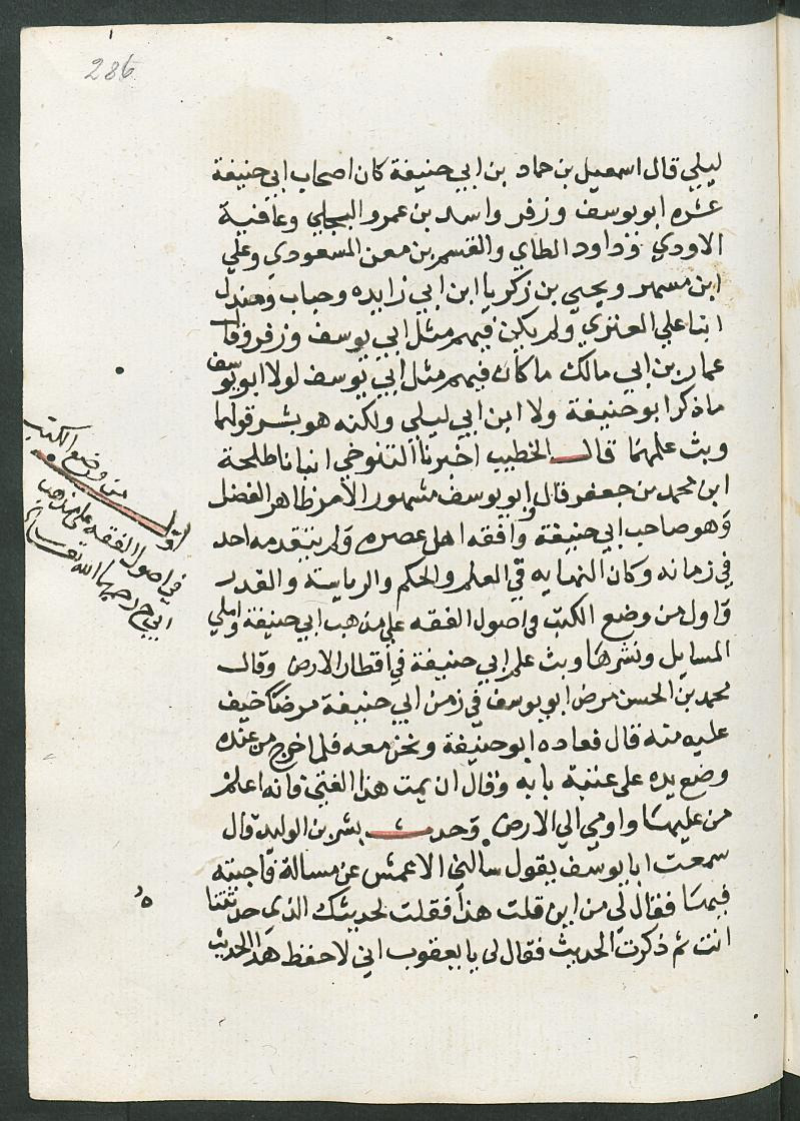 286
ليلي قال اسمعيل بن حماد بن ابي حنيفة كان اصحاب ابي حنيفة
عشره ابو يوسف وزفر واسد بن عمرو البجلي وعافية
الاودي وداود الطاي والقسم بن معن المسعودي وعلي
ابن مسهر ويحيي بن زكريا ابن ابي زايده وحباب ومندل
ابنا علي العنزي ولم يكن فيهم مثل ابي يوسف وزفر وقال
عمار بن ابي مالك ما كان فيهم مثل ابي يوسف لولا ابو يوسف
ما ذكر ابو حنيفة ولا ابن ابي ليلي ولكنه هو نشر قولهما
وبث علمهما قال الخطيب اخبرنا التنوخي انبانا طلحة
ابن محمد بن جعفر قال ابو يوسف مشهور الامر ظاهر الفضل
وهو صاحب ابي حنيفة وافقه اهل عصره ولم يتقدمه احد
في زمانه وكان النهايه في العلم والحكم والرياسة والقدر
واول من وضع الكتب في اصول الفقه علي مذهب ابي حنيفة واملي
المسايل ونشرها وبث علم ابي حنيفة في اقطار الارض وقال
محمد بن الحسن مرض ابو يوسف في زمن ابي حنيفة مرضا خيف
عليه منه قال فعاده ابو حنيفة ونحن معه فلما خرج من عنده
وضع يده علي عتبة بابه وقال ان يمت هذا الفتي فانه اعلم
من عليها واومي الي الارض وحدث بشر بن الوليد قال
سمعت ابا يوسف يقول سالني الاعمش عن مسالة فاجبته
فيها فقال لي من اين قلت هذا فقلت لحديثك الذي حدثتنا
انت ثم ذكرت الحديث فقال لي يا يعقوب اني لاحفظ هذا الحديث
اول من وضع الكتب
في اصول الفقه علي مذهب
ابي ح رحمهما الله تعالي